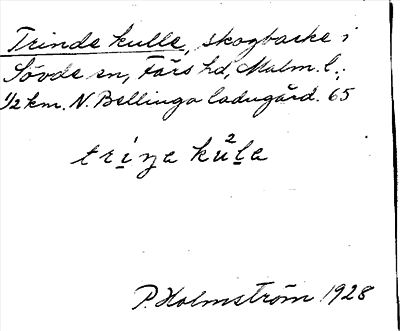 Trinde kulle, skogbacke i
Sövde sn, Färs hd, Malm. l.;
1/2 km. N. Bellinga ladugård. 65
trińa ku²la
P. Holmström 1928